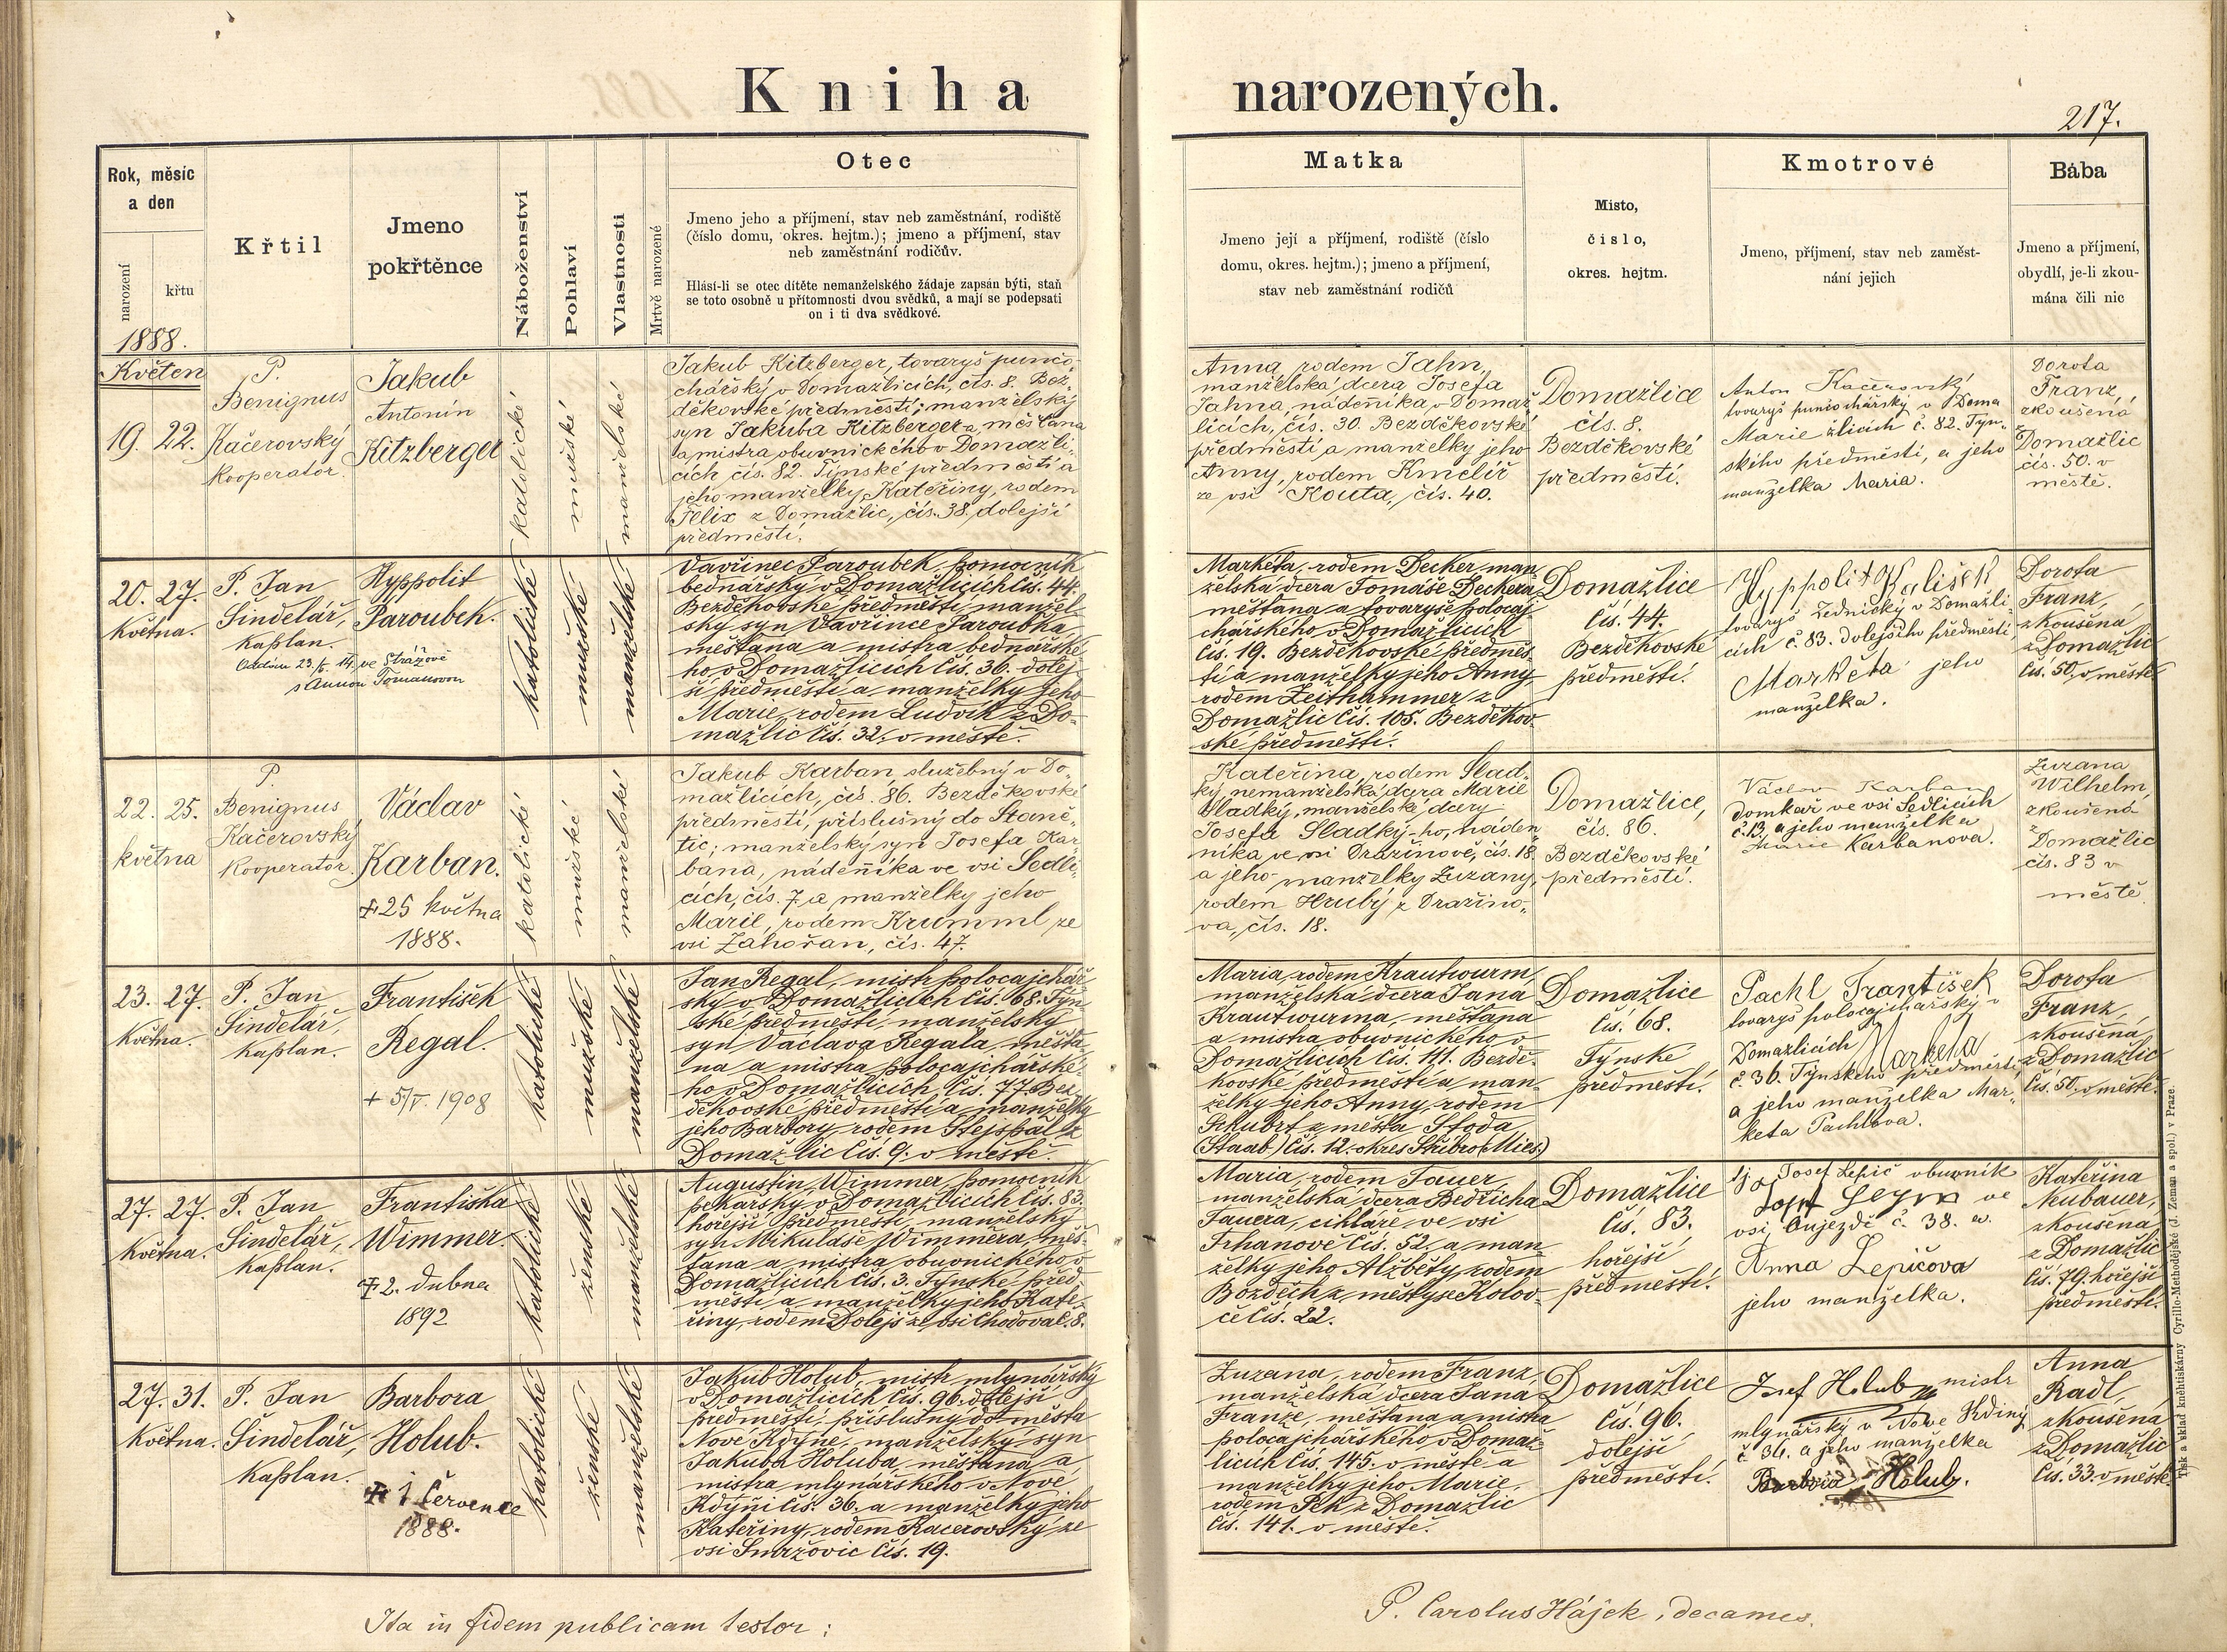 Kniha narozených.
217.
Rok, měsíc
a den
narození
křtu
Křtil
Jmeno
pokřtěnce
Náboženství
Pohlaví
Vlastnosti
Mrtvě narozené
Otec
Jmeno jeho a příjmení, stav neb zaměstnání, rodiště
(číslo domu, okres. hejtm.); jmeno a příjmení, stav
neb zaměstnání rodičův.
Hlásí-li se otec dítěte nemanželského žádaje zapsán býti, staň
se toto osobně u přítomnosti dvou svědků, a mají se podepsati
on i ti dva svědkové.
Matka
Jmeno její a příjmení, rodiště (číslo
domu, okres. hejtm.); jmeno a příjmení,
stav neb zaměstnání rodičů
Misto,
číslo,
okres. hejtm.
Kmotrové
Jmeno, příjmení, stav neb zaměst-
nání jejich
Bába
Jmeno a příjmení,
obydlí, je-li zkou-
mána čili nic
1888.
Květen
19. 22.
P.
Benignus
Kačerovský
Kooperatór.
Jakub
Antonín
Kitzberger
katolické
mužské
manželské
Jakub Kitzberger, tovaryš punčo-
chářský v Domažlicích, čís. 8. Bez-
děkovské předměstí; manželský
syn Jakuba Kitzbergera, měšťana
a mistra obuvnického v Domažli-
cích čís. 82. Týnské předměstí a
jeho manželky Kateřiny, rodem
Felix z Domažlic, čís. 38, dolejší
předměstí.
Anna, rodem Jahn,
manželská dcera Josefa
Jahna, nádenníka, v Domaž-
licích, čís. 30. Bezděkovské
předměstí a manželky jeho
Anny, rodem Kmelíř
ze vsi Kouta, čís. 40.
Domažlice
čís. 8.
Bezděkovské
předměstí.
Anton Kačerovský
tovaryš punčochářský v Doma
Marie žlicích č. 82. Týn-
ského předměstí, a jeho
manželka Maria.
Dorota
Franz,
zkoušená
z
Domažlic
čís. 50. v
městě.
20. 27.
Května.
P. Jan
Šindelář,
kaplan.
Oddán 23./5. 14. ve Strážově
s Annou Tomanovou
Hyppolit
Paroubek.
katolické.
mužské.
manželské.
Vavřinec Paroubek, pomocník
bednářský v Domažlicích čís. 44.
Bezděkovské předměstí, manžel-
ský syn Vavřince Paroubka,
měšťana a mistra bednářské-
ho v Domažlicích čís. 36. dolej-
ší předměstí a manželky jeho
Marie, rodem Ludvík z Do-
mažlic čís. 32. v městě.
Markéta, rodem Decker, man-
želská dcera Tomáše Deckera,
měšťana a tovaryše polocaj-
chářského v Domažlicích
čís. 19. Bezděkovské předměs-
tí a manželky jeho Anny,
rodem Zeithammer z
Domažlic čís. 105. Bezděkov-
ské předměstí.
Domažlice
čís. 44.
Bezděkovské
předměstí.
Hyppolit Kališek
tovaryš zednický v Domažli-
cích č. 83. dolejšího předměstí
Markéta jeho
manželka.
Dorota
Franz,
zkoušená
z Domažlic
čís. 50. v městě.
22. 25.
května
P.
Benignus
Kačerovský
Kooperatór.
Václav
Karban.
25 května
1888.
katolické
mužské
manželské
Jakub Karban, služebný v Do-
mažlicích, čís. 86. Bezděkovské
předměstí, příslušný do Staně-
tic; manželský syn Josefa Kar-
bana, nádenníka ve vsi Sedli-
cích, čís. 7 a manželky jeho
Marie, rodem Krumml ze
vsi Zahořan, čís. 47.
Kateřina, rodem Slad-
ký, nemanželská dcera Marie
Sladký, manželské dcery
Josefa Sladký-ho, náden-
níka ve vsi Dražínově, čís. 18.
a jeho manželky Zuzany,
rodem Hrubý z Dražíno-
va, čís. 18.
Domažlice,
čís. 86.
Bezděkovské
předměstí.
Václav Karban
domkář ve vsi Sedlicích
č. 13. a jeho manželka
Marie Karbanova.
Zuzana
Wilhelm,
zkoušená
z
Domažlic
čís. 83 v
městě.
23. 27.
Května.
P. Jan
Šindelář,
kaplan.
František
Regal.
+ 5/V. 1908
katolické.
mužské.
manželské.
Jan Regal, mistr polocajchář-
ský v Domažlicích čís. 68. Týn-
ské předměstí, manželský
syn Václava Regala, měšťa-
na a mistra polocajchářské-
ho v Domažlicích čís. 77. Bez-
děkovské předměstí a manželky
jeho Barbory, rodem Stejspal z
Domažlic čís. 9. v městě.
Maria, rodem Krautwurm,
manželská dcera Jana
Krautwurma, měšťana
a mistra obuvnického v
Domažlicích čís. 111. Bezdě-
kovské předměstí a man-
želky jeho Anny, rodem
Schubrt z města Stoda,
(Staab) čís. 12. okres Stříbro (Mies.)
Domažlice
čís. 68.
Týnské
předměstí.
Pachl František
tovaryš polocajchářský v
Domažlicích Marketa
č. 36. Týnského předměstí
a jeho manželka Mar-
keta Pachlova.
Dorota
Franz,
zkoušená,
z Domažlic
čís. 50. v městě.
27. 27.
Května.
P. Jan
Šindelář,
kaplan.
Františka
Wimmer.
2. dubna
1892
katolické.
ženské.
manželské.
Augustin Wimmer, pomocník
pekařský v Domažlicích čís. 83.
hořejší předměstí, manželský
syn Mikuláše Wimmera, měš-
ťana a mistra obuvnického v
Domažlicích čís. 3. Týnské před-
městí a manželky jeho Kate-
řiny, rodem Dolejš ze vsi Chodova č. 8.
Maria, rodem Tauer,
manželská dcera Bedřicha
Tauera, cihláře ve vsi
Trhanově čís. 52. a man-
želky jeho Alžběty, rodem
Bozděch z městyse Kolov-
če čís. 22.
Domažlice
čís. 83.
hořejší
předměstí.
Josef Lepič obuvník
ve
vsi Oujezdě č. 38. a.
Anna Lepičova
jeho manželka.
Kateřina
Neubauer,
zkoušená
z Domažlic
čís. 79. hořejší
předměstí.
27. 31.
Května.
P. Jan
Šindelář,
kaplan.
Barbora
Holub.
1 Července
1888.
katolické
ženské.
manželské.
Jakub Holub, mistr mlynářský
v Domažlicích čís. 96. dolejší
předměstí, příslušný do města
Nové Kdyně, manželský syn
Jakuba Holuba, měšťana a
mistra mlynářského v Nové
Kdyni čís. 36. a manželky jeho
Kateřiny, rodem Kacerovský ze
vsi Smržovic čís. 19.
Zuzana, rodem Franz,
manželská dcera Jana
Franze, měšťana a mistra
polocajchářského v Domaž-
licích čís. 145. v městě a
manželky jeho Marie,
rodem Pek z Domažlic
čís. 141. v městě.
Domažlice
čís. 96.
dolejší
předměstí.
Josef Holub mistr
mlynářský v Nové Kdiny
č 34. a jeho manželka
Barbora Holub.
Anna
Radl,
zkoušená
z Domažlic
čís. 33. v městě.
Tisk a sklad knihtiskárny Cyrillo-Methodějské (J. Zeman a spol.) v Praze.
Ita in fidem publicam testor:
P. Carolus Hájek, decanus.